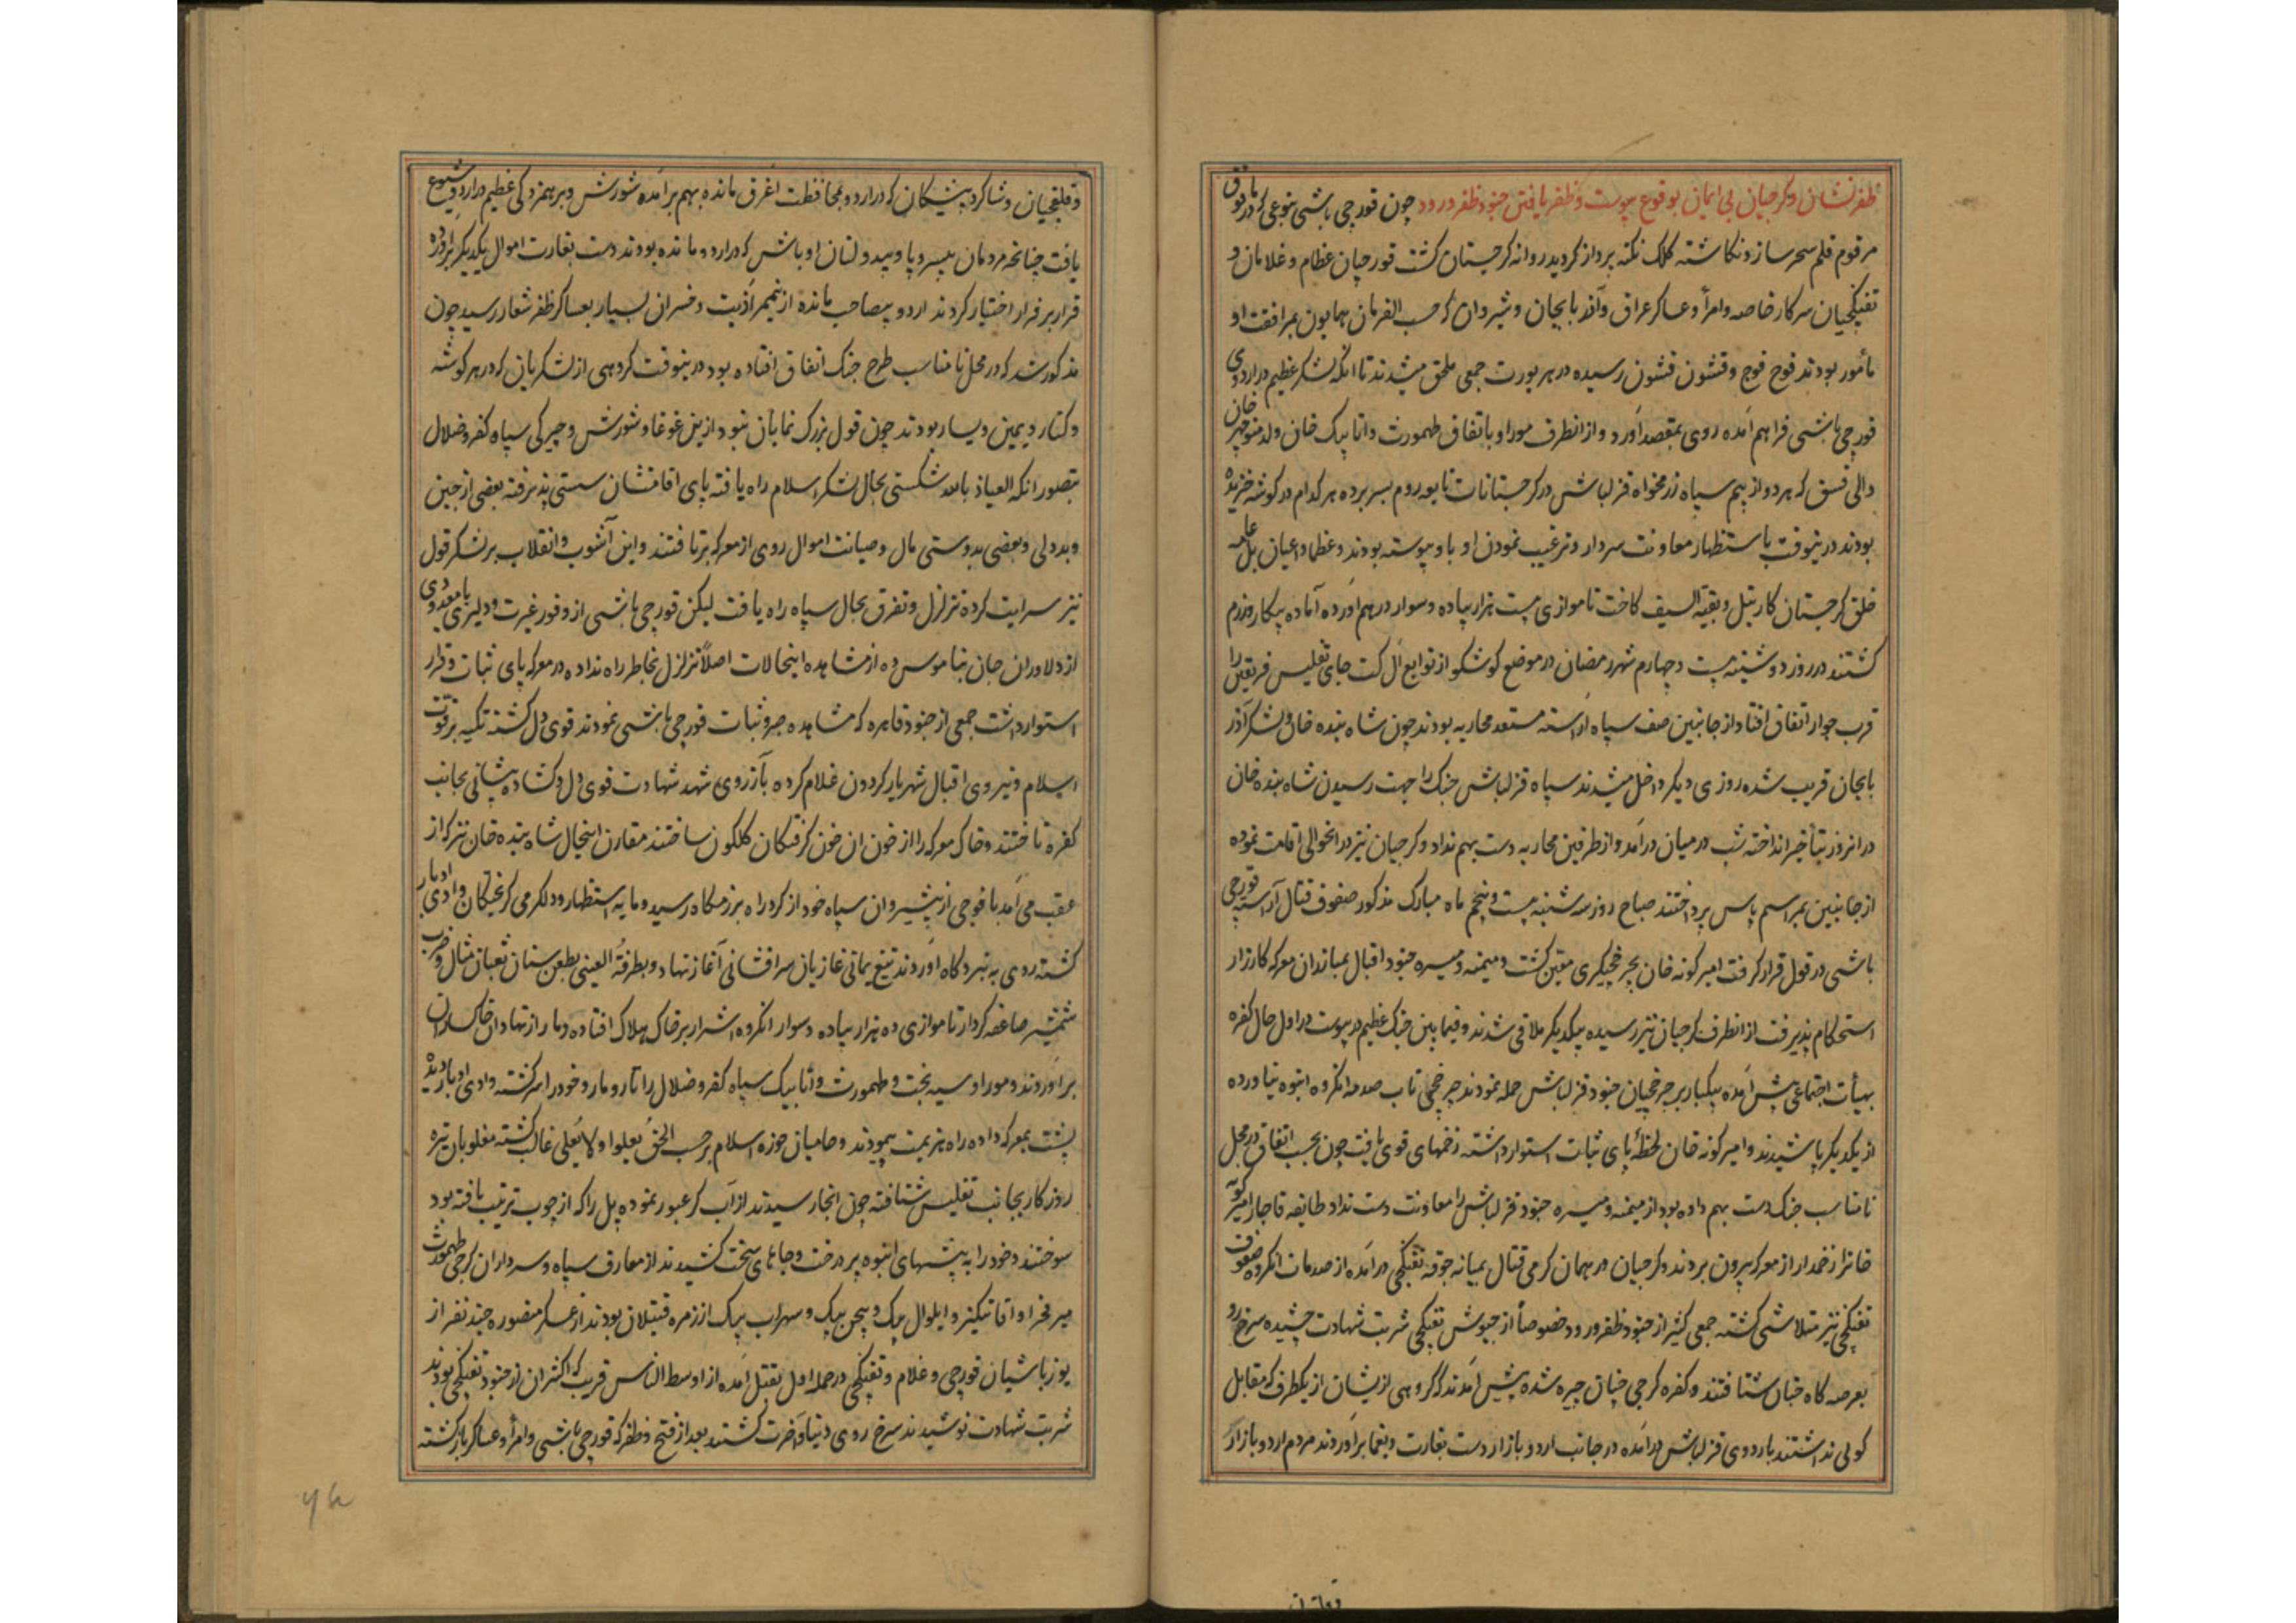 ظفرنشان و کرجیان بی ایمان بوقوع پیوست و ظفر یافتن جنود ظفر ورود چون قورچی باشی بنوعی که در فوق
مرقوم قلم سحرساز و نکاشته کلک نکته پرداز کردید روانه کرجستان کشت قورچیان عظام و غلامان و
تفنکچیان سرکار خاصه و امرأ و عساکر عراق و آذربایجان و شیروان که حسب الفرمان همایون بمرافقت او
مأمور بودند فوج فوج و قشون قشون رسیده در هر یورت جمعی ملحق میشدند تا انکه لشکر عظیم در اردوی
قورچی باشی فراهم آمده روی بمقصد آورد و از انطرف موراو باتفاق طهمورث و اتابیک خان ولد منوچهر خان
والی که هر دو از بیم سپاه قزلباش در کرجستانات بسر برده هر کدام در کوشه خزیده
بودند درینوقت باستظهار معاونت سردار و ترغیب نمودن او باو پیوسته بودند و عظما و اعیان بل عامه
خلق کرجستان کارتیل و بقیة السیف کاخت تا موازی بیست هزار پیاده و سوار در هم آورده آماده پیکار و رزم
کشتند در روز دوشنبه بیست و چهارم شهر رمضان در موضع کوشکو از توابع جای تفلیس فریقین را
قرب جوار اتفاق افتاد از جانبین صف سپاه آراسته مستعد محاربه بودند چون شاه بنده خان و لشکر آذر
بایجان قریب شده روزی دیکر داخل میشدند سپاه قزلباش جنک را جهت رسیدن شاه بنده خان
در انروز بتأخیر انداخته شب در میان درآمد و از طرفین محاربه دست بهم نداد و کرجیان نیز در انحوالی اقامت نموده
از جانبین بمراسم پاس پرداختند صباح روز سه شنبه بیست و پنجم ماه مبارک مذکور صفوف قتال آراسته قورچی
باشی در قول قرار کرفت امیر کونه خان بچرخچیکری معین کشت و میمنه و میسره جنود اقبال بمبارزان معرکه کارزار
استحکام پذیرفت از انطرف کرجیان نیز رسیده بیکدیکر ملاقی شدند و فیما بین جنک عظیم در پیوست در اول حال کفره
بهیأت اجتماعی پیش آمده بیکبار بر چرخچیان جنود قزلباش حمله نمودند چرخچی تاب صدمه انکروه انبوه نیاورده
از یکدیکر پاشیدند و امیر کونه خان لحظهٔ پای ثبات استوار داشته زخمهای قوی یافت چون بحسب اتفاق در محل
نامناسب جنک دست بهم داده بود از میمنه و میسره جنود قزلباش را معاونت دست نداد طایفه قاجار امیر کونه
خانرا زخمدار از معرکه بیرون بردند و کرجیان در همان کرمی قتال بمیانه جوقه تفنکچی درآمده از صدمات انکروه صفوف
تفنکچی نیز متلاشی کشته جمعی کثیر از جنود ظفر ورود خصوصاً از جیوش تفنکچی شربت شهادت چشیده سرخ رو
بعرصه کاه جنان شتافتند و کفره کرجی چنان چیره شده پیش آمدند که گروهی ازیشان از یکطرف که مقابل
کولی نداشتند باردوی قزلباش درآمده در جانب اردو بازار دست بغارت و یغما برآوردند مردم اردو بازار
و قلقچیان و شاکرد پیشکان که در اردو بمحافظت اغرق مانده بهم برآمده شورش و برهمزدکی عظیم در اردو شیوع
یافت چنانچه مردمان بیسر و پا و بیدولتان اوباش که در اردو مانده بودند دست بغارت اموال یکدیکر برآورده
قرار بر فرار اختیار کردند اردو بیصاحب مانده ازینممر اذیت و خسران بسیار بعساکر ظفر شعار رسید چون
مذکور شد که در محل نامناسب طرح جنک اتفاق افتاده بود درینوقت کروهی از لشکریان که در هر کوشه
و کنار و یمین و یسار بودند چون قول بزرک نمایان نبود ازین غوغا و شورش و چیرکی سپاه کفر و ضلال
بتصور انکه العیاذ بالله شکستی بحال لشکر اسلام راه یافته پای اقامتشان سستی پذیرفته بعضی از جبن
و بددلی و بعضی بدوستی مال و صیانت اموال روی از معرکه برتافتند و این آشوب و انقلاب بر لشکر قول
نیز سرایت کرده تزلزل و تفرق بحال سپاه راه یافت لیکن قورچی باشی از وفور غیرت و دلیری با معدودی
از دلاوران جان بناموس ده از مشاهده اینحالات اصلاً تزلزل بخاطر راه نداده در معرکه پای ثبات و قرار
استوار داشت جمعی از جنود قاهره که مشاهده صبر و ثبات قورچی باشی نمودند قوی دل کشته تکیه بر قوت
اسلام و نیروی اقبال شهریار کردون غلام کرده بآرزوی شهد شهادت قوی دل و کشاده پیشانی بجانب
کفره تاختند و خاک معرکه را از خون ان خون کرفتکان کلکون ساختند مقارن اینحال شاه بنده خان نیز که از
عقب می آمد با فوجی از پیشروان سپاه خود از کرد راه برزمکاه رسید و مایه استظهار و دلکرمی کریختکان وادی ادبار
کشته روی به نبردکاه آوردند تیغ یمانی غازیان سرافشانی آغاز نهاد و بطرفة العینی بطعن سنان ثعبان مثال و ضرب
شمشیر صاعقه کردار تا موازی ده هزار پیاده و سوار انکروه اشرار بر خاک هلاک افتاده دمار از نهاد ان خاکساران
برآوردند و موراو سیه بخت و طهمورث و اتابیک سپاه کفر و ضلال را تار و مار و خود را سرکشته وادی ادبار دیده
پشت بمعرکه داده راه هزیمت پیمودند و حامیان حوزه اسلام بر حسب الحق یعلوا و لا یعلی غالب کشته مغلوبان تیره
روزکار بجانب تفلیس شتافته چون انجا رسیدند از آب کر عبور نموده پل را که از چوب ترتیب یافته بود
سوختند و خود را به بیشهای انبوه پر درخت و جاهای سخت کشیدند از معارف سپاه و سرداران کرجی طهمورث
میر فخر او و ایلوال بیک و بیجن بیک و سهراب بیک از زمره قتیلان بودند از عساکر منصوره چند نفر از
یوزباشیان قورچی و غلام و تفنکچی در حمله اول بقتل آمده از اوسط الناس قریب که اکثر ان از جنود تفنکچی بودند
شربت شهادت نوشیدند سرخ روی دنیا و آخرت کشتند بعد از فتح و ظفر که قورچی باشی و امرأ و عساکر بازکشته